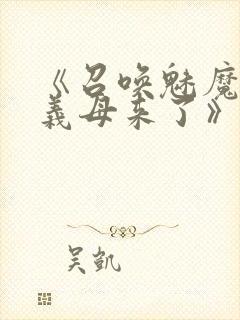 《召唤魅魔
義母来了》
吴凯